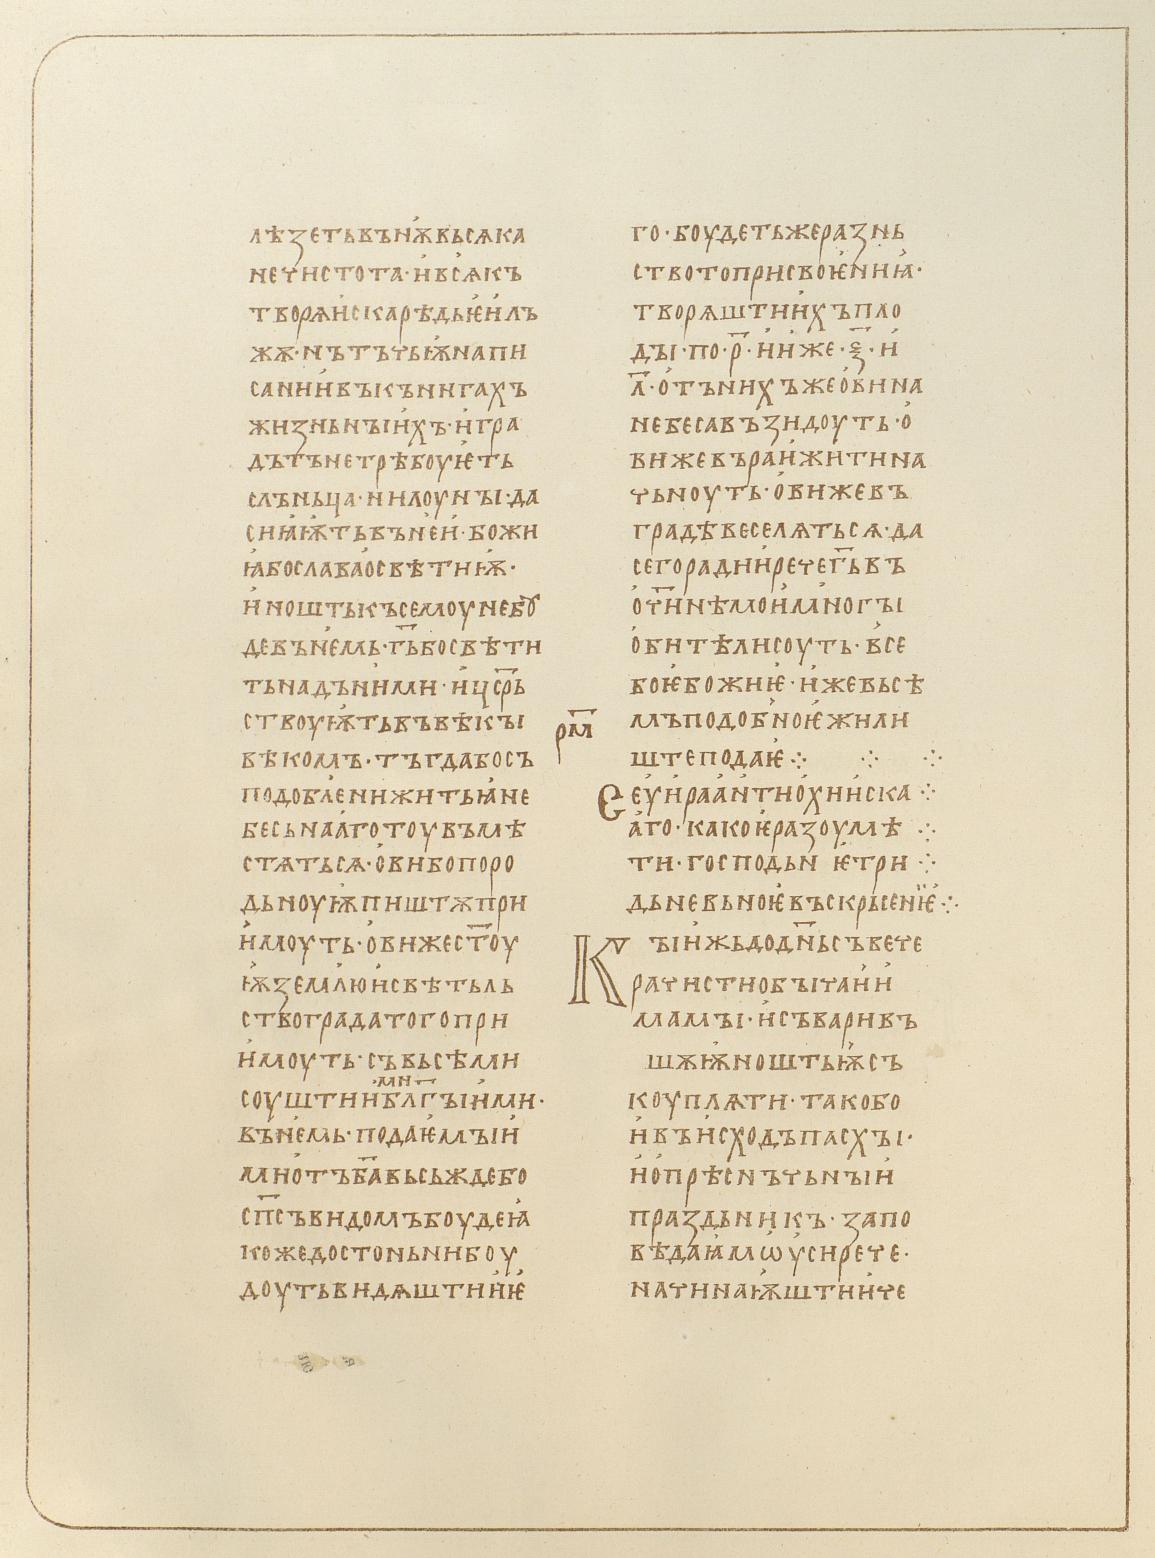 лѣзетьвънѫвьсѧка
неүистота·ивсѧкъ
творѧискарѣдьѥилъ
жѫ·нътъүьѭнапи
саниивъкънигахъ
жизньнꙑихъ·игра
дътънетрѣбоуѥть
слъньца·нилоунꙑ·да
сниꙗѭтьвънеи·божи
ꙗбославаосвѣтиѭ·
иноштькъсемоунебѫ
девънемь·г҃ьбосвѣти
тьнадъними·иц҃срь
ствоуѭтьвъвѣкꙑ
вѣкомъ·тъгдабосъ
подоблениажитьꙗне
бесьнааготоувъмѣ
стѧтьсѧ·овибопоро
дьноуѭпиштѫпри
имоуть·овижест҃оу
ѭземлюисвѣтьль
ствоградатогопри
имоуть·съвьсѣми
·ми
соуштиибл҃гꙑими·
вънемь·подаѥмꙑи
миотъб҃авьсьждебо
сп҃съвидомъбоудеꙗ
кожедостоиьнибоу
доутьвидѧштииѥ
го·боудетьжеразнь
ствотоприсвоѥниꙗ·
творѧштиихъпло
дꙑ·по·р҃·ииже·ѯ҃·и
л҃·отънихъжеовина
небесавъзидоуть·о
вижевъраижитина
үьноуть·овижевъ
градѣвеселѧтьсѧ·да
сегорадииреүег҃ьвъ
оү҃инѣмоимъмногꙑ
обитѣлисоуть·все
боѥбожиѥ·ижевьсѣ
рм҃
мъподобноѥжили
штеподаѥ⁘ ⁘ ⁘
Єеүираантиохииска⁘
аго·какоѥразоумѣ⁘
ти·господьн ѥтри⁘
дьневьноѥвъскрьсениѥ⁘
Кꙑижьдодн҃ьсъвеүе
раүистиобꙑүаии
мамꙑ·исъваривъ
шѫѭноштьѭсъ
коуплѧти·такобо
ивъисходъпасхꙑ·
иопрѣснъүьнꙑи
праздьникъ·запо
вѣдаꙗмѡүсиреүе·
наүинаѭштиιүе